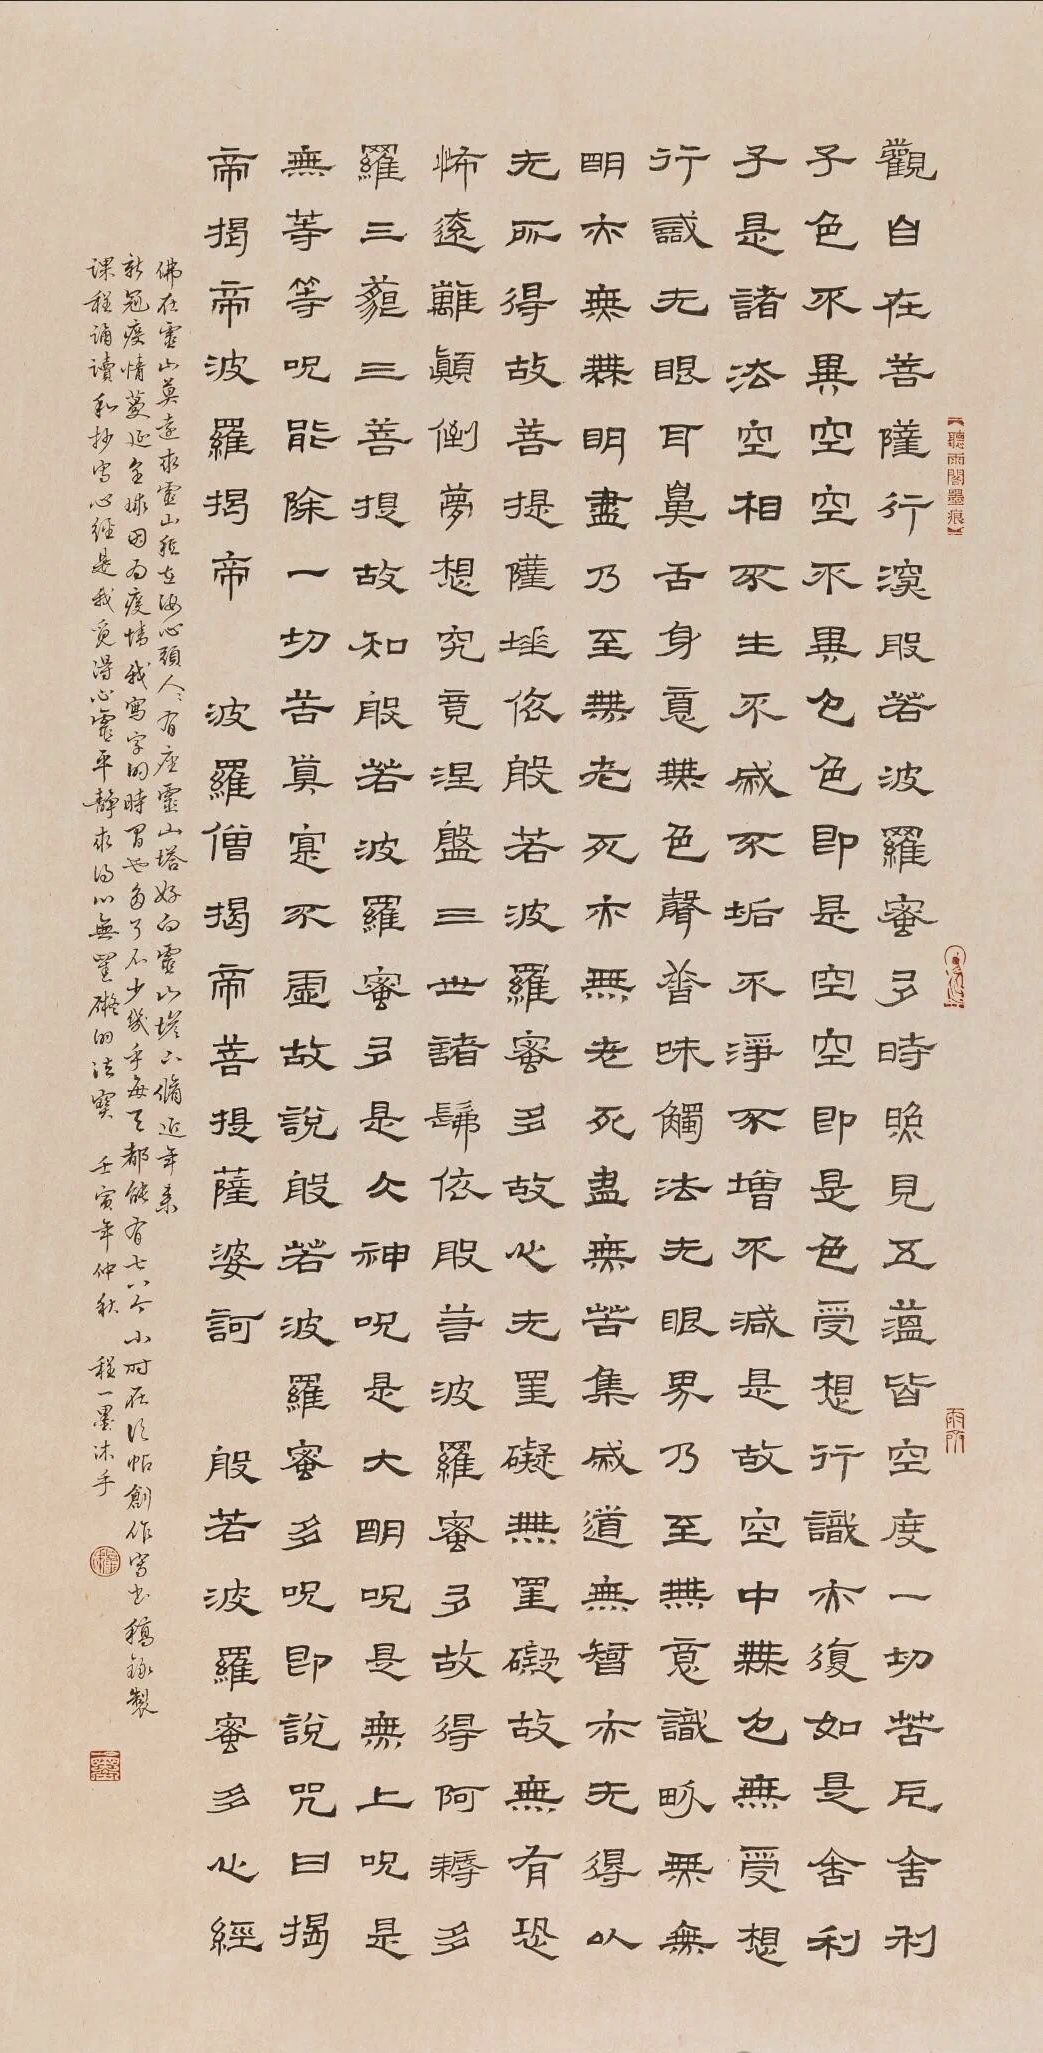 觀自在菩薩行深般若波羅蜜多時照見五蘊皆空度一切苦厄舍利
子色不異空空不異色色即是空空即是色受想行識亦復如是舍利
子是諸法空相不生不滅不垢不淨不增不減是故空中無色無受想
行識无眼耳鼻舌身意無色聲香味觸法无眼界乃至無意識界無無
明亦無無明盡乃至無老死亦無老死盡無苦集滅道無智亦无得以
无所得故菩提薩埵依般若波羅蜜多故心无罣礙無罣礙故無有恐
怖遠離顛倒夢想究竟涅盤三世諸佛依般若波羅蜜多故得阿耨多
羅三藐三菩提故知般若波羅蜜多是大神呪是大明呪是無上呪是
無等等呪能除一切苦真實不虛故說般若波羅蜜多呪即說咒曰揭
帝揭帝波羅揭帝 波羅僧揭帝菩提薩婆訶 般若波羅蜜多心經
佛在靈山莫遠求靈山秖在汝心頭人人有座靈山塔好向靈山塔下脩近年來
新冠疫情蔓延全球因為疫情我寫字的時間也多了不少幾乎每天都能有七八个小时在臨帖創作寫書稿錄製
課程誦讀和抄寫心經是我覓得心靈平靜求得心無罣礙的法寶 壬寅年仲秋 程一墨沐手
聽雨閣墨痕